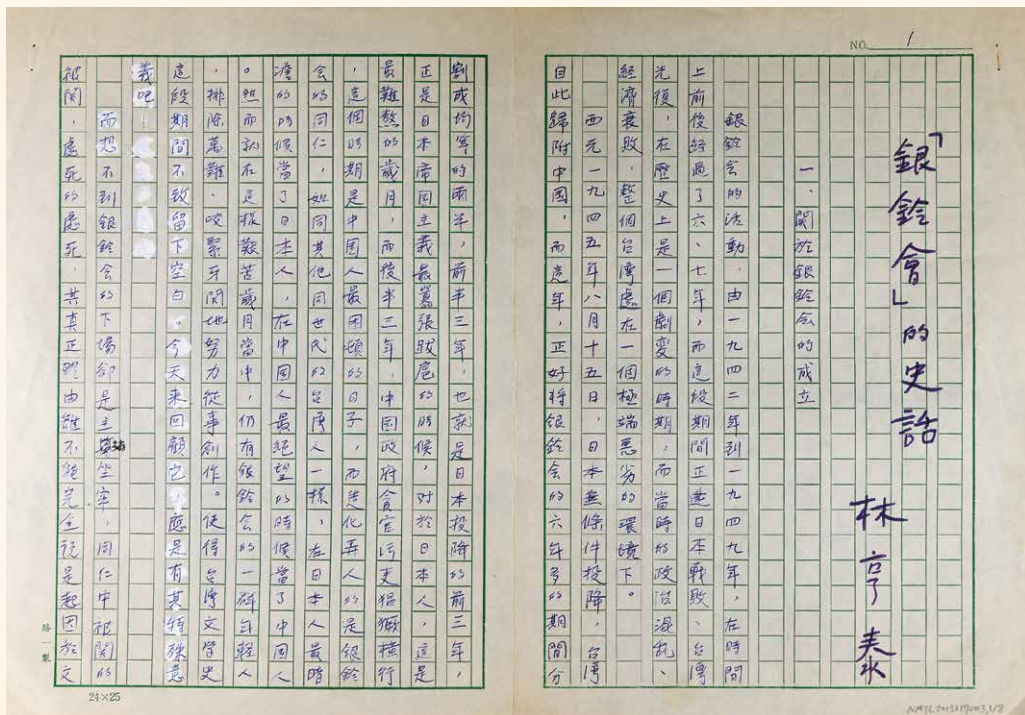 NO. 1
「銀鈴會」的史話
林亨泰
一、關於銀鈴会的成立
銀鈴会的活動，由一九四二年到一九四九年，在時間
上前後經過了六、七年，而這段期間正逢日本戰敗、台灣
光復，在歷史上是一個劇變的時期，而當時的政治混乱、
經濟衰敗，整個台灣處在一個極端惡劣的環境下。
西元一九四五年八月十五日，日本無條件投降，台灣
自此歸附中國，而這年，正好將銀鈴会的六年多的期間分
割成均等的兩半，前半三年，也就是日本投降的前三年，
正是日本帝国主義最囂張跋扈的時候，对於日本人，這是
最難熬的歲月，而後半三年，中国政府貪官污吏猖獗橫行
，這個時期是中国人最困頓的日子，而造化弄人的是銀鈴
会的同仁，如同其他同世代的台灣人一樣，在日本人最暗
澹的時候當了日本人，在中国人最絕望的時候當了中国人
。然而就在這樣艱苦歲月當中，仍有銀鈴会的一群年輕人
，排除萬難、咬緊牙関地努力從事創作。使得台灣文学史
這段期間不致留下空白，今天來回顧它，應是有其特殊意
義吧！
而想不到銀鈴会的下場卻是主編坐牢，同仁中被関的
被関，處死的處死，其真正理由雖不能完全說是起因於文
24×25
勝一製
NMTL20150190003,1/8